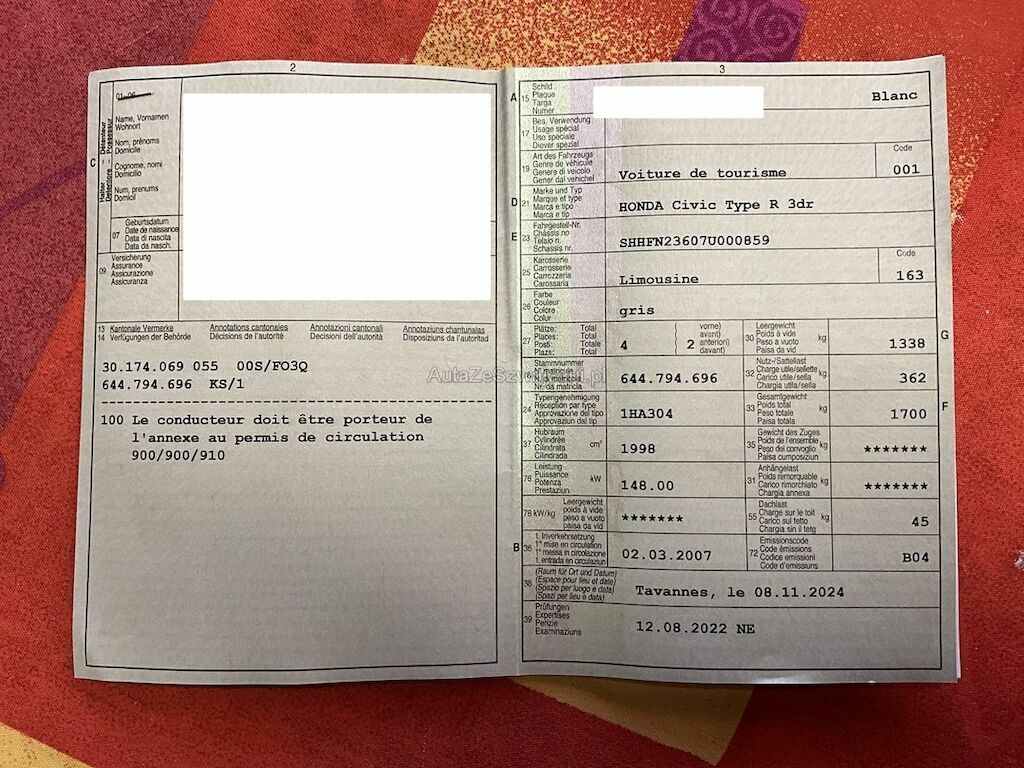 2
01-06
C
Halter – Détenteur
Detentore – Possessur
Name, Vornamen
Wohnort
Nom, prénoms
Domicile
Cognome, nomi
Domicilio
Num, prenums
Domicil
07
Geburtsdatum
Date de naissance
Data di nascita
Data da nasch.
09
Versicherung
Assurance
Assicurazione
Assicuranza
13 Kantonale Vermerke Annotations cantonales Annotazioni cantonali Annotaziuns chantunalas
14 Verfügungen der Behörde Décisions de l'autorité Decisioni dell'autorità Disposiziuns da l'autoritad
30.174.069 055 00S/FO3Q
644.794.696 KS/1
100 Le conducteur doit être porteur de
l'annexe au permis de circulation
900/900/910
3
A 15
Schild
Plaque
Targa
Numer
Blanc
17
Bes. Verwendung
Usage spécial
Uso speciale
Diever spezial
19
Art des Fahrzeugs
Genre de véhicule
Genere di veicolo
Gener dal vehichel
Voiture de tourisme
Code
001
D 21
Marke und Typ
Marque et type
Marca e tipo
Marca e tip
HONDA Civic Type R 3dr
E 23
Fahrgestell-Nr.
Châssis no
Telaio n.
Schassis nr.
SHHFN23607U000859
25
Karosserie
Carrosserie
Carrozzeria
Carossaria
Limousine
Code
163
26
Farbe
Couleur
Colore
Colur
gris
27
Plätze: Total
Places: Total
Posti: Totale
Plaza: Total
4
vorne)
avant)
2 anterion)
davant)
30
Leergewicht
Poids à vide
Peso a vuoto
Paisa da vid
kg
1338
G
Stammnummer
Nº matricule
Nº di matricola
Nr. da matricla
644.794.696
32
Nutz-/Sattellast
Charge utile/sellette
Carico utile/sella
Chargia utila/sella
kg
362
24
Typengenehmigung
Réception par type
Approvazione del tipo
Approvaziun dal tip
1HA304
33
Gesamtgewicht
Poids total
Peso totale
Paisa totala
kg
1700
F
37
Hubraum
Cylindrée
Cilindrata
Cilindrada
cm³
1998
35
Gewicht des Zuges
Poids de l'ensemble
Peso del convoglio
Paisa cumposiziun
kg
*******
76
Leistung
Puissance
Potenza
Prestaziun
kW
148.00
31
Anhängelast
Poids remorquable
Carico rimorchiato
Chargia annexa
kg
*******
78 kW/kg
Leergewicht
poids à vide
peso a vuoto
paisa da vid
*******
55
Dachlast
Charge sur le toit
Carico sul tetto
Chargia sin il tetg
kg
45
B 36
1. Inverkehrsetzung
1re mise en circulation
1a messa in circolazione
1. entrada en circulaziun
02.03.2007
72
Emissionscode
Code émissions
Codice emissioni
Code d'emissiuns
B04
38
(Raum für Ort und Datum)
(Espace pour lieu et date)
(Spazio per luogo e data)
(Spazi per lieu e data)
Tavannes, le 08.11.2024
39
Prüfungen
Expertises
Perizie
Examinaziuns
12.08.2022 NE